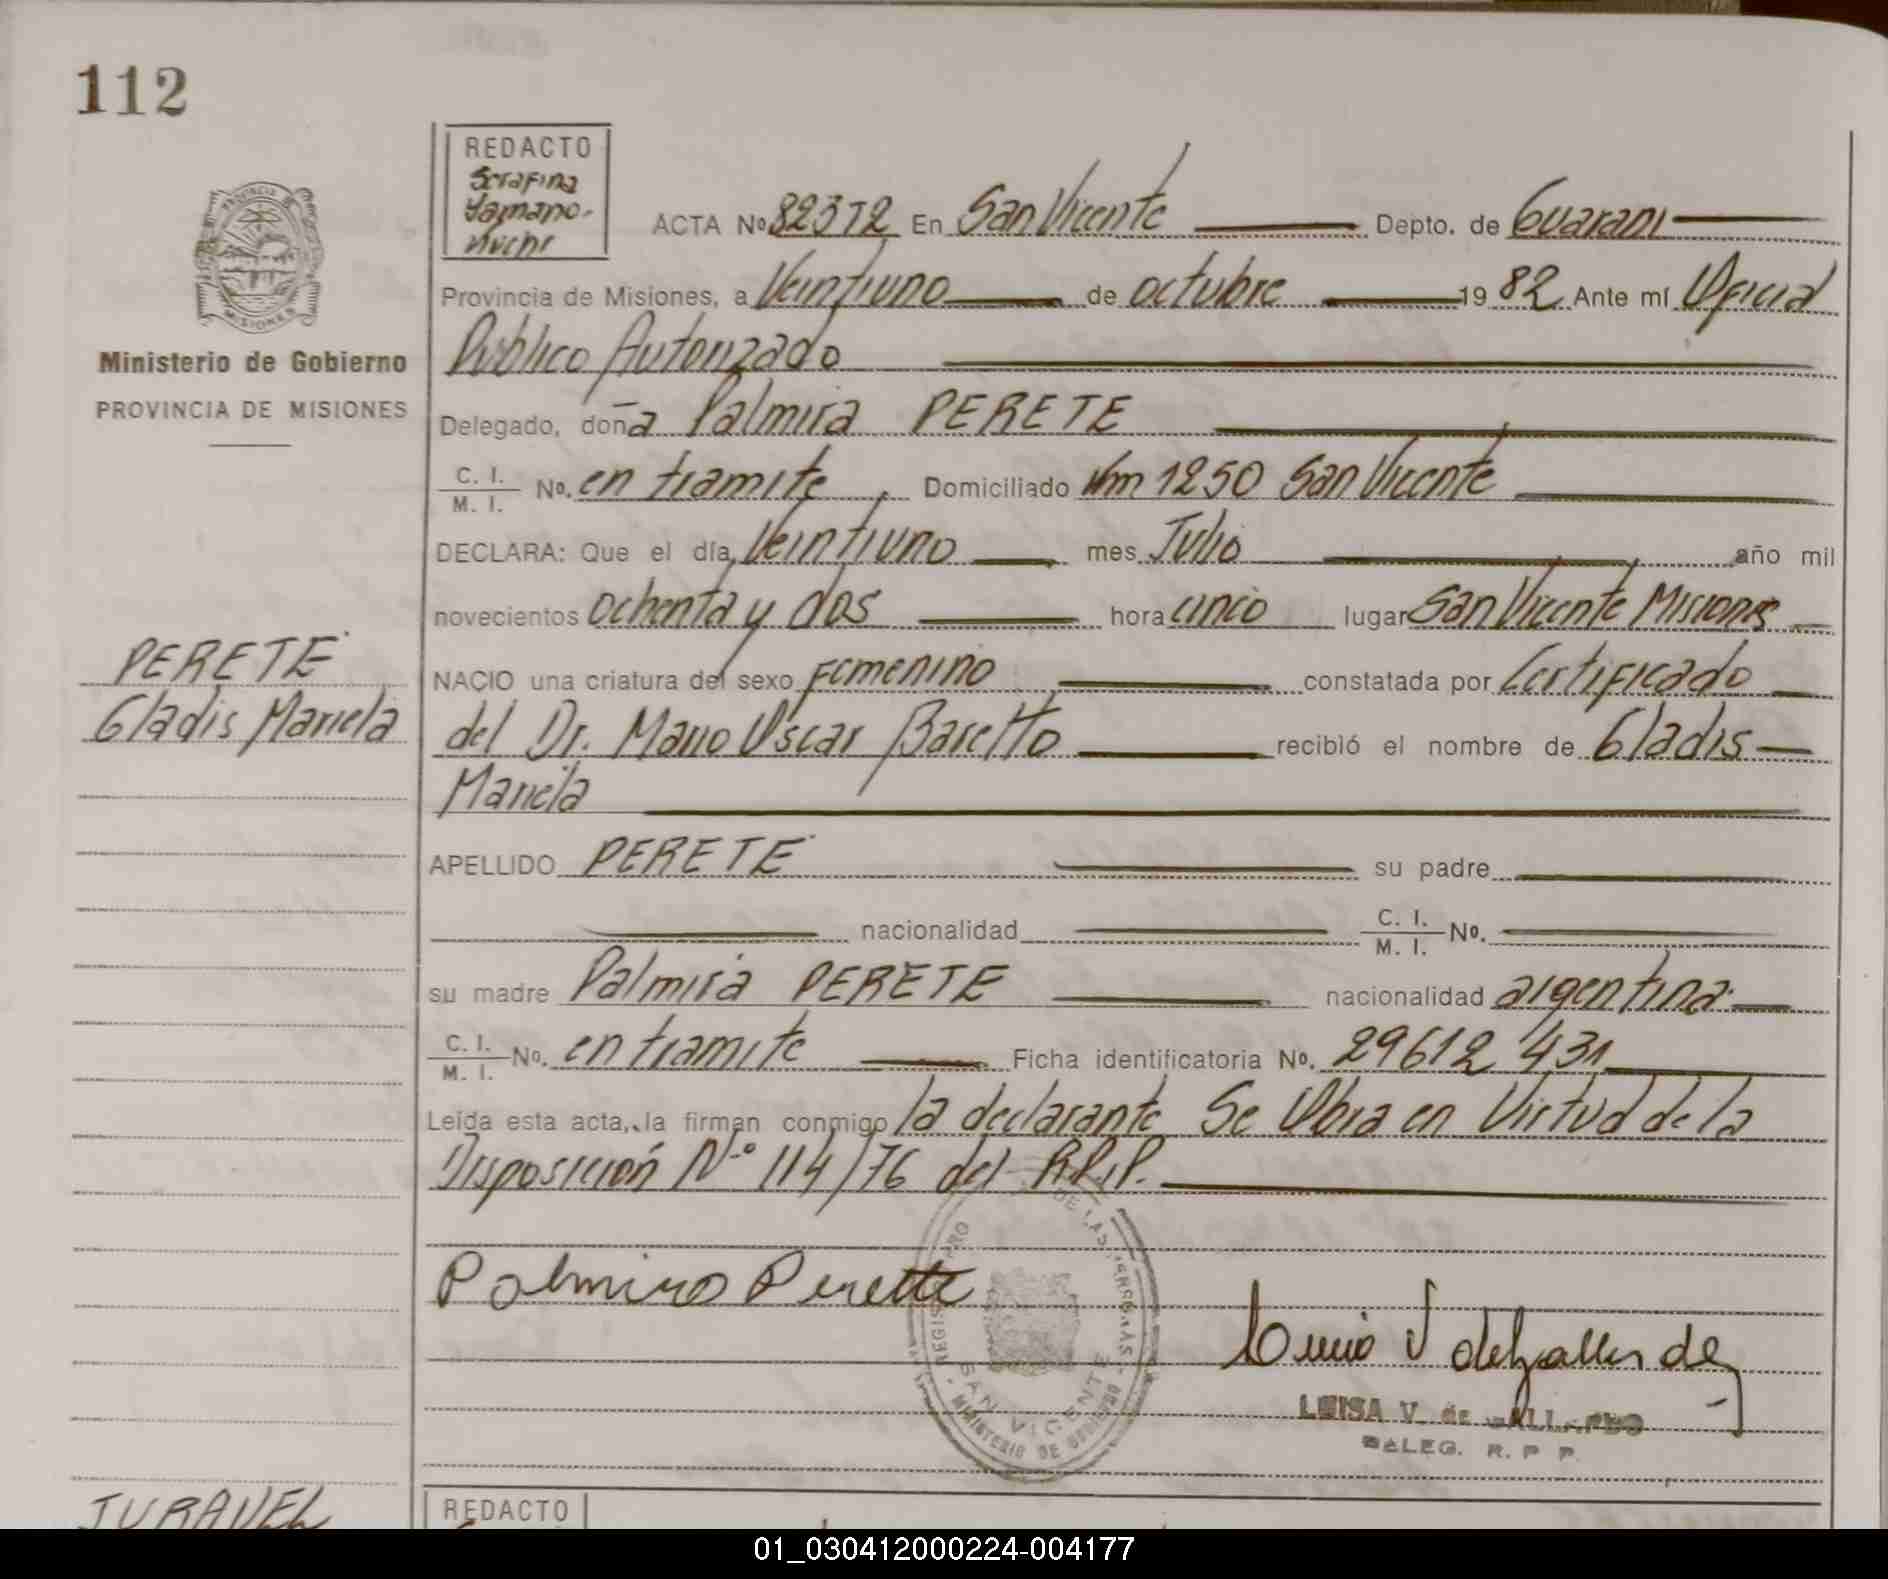 112
REDACTO
Serafina
Yamano-
ACTA No 82372 En San Vicente Depto. de Guarani
Provincia de Misiones, a Veintiuno de octubre 1982 Ante mí Oficial
Publico Autorizado
MISIONES
Ministerio de Gobierno
PROVINCIA DE MISIONES
Delegado, doña Palmira PERETE
C. I.
M. I. No. en tramite, Domiciliado Km 1250 San Vicente
DECLARA: Que el día Veintiuno mes Julio año mil
novecientos ochenta y dos hora cinco lugar San Vicente Misiones
PERETE
Gladis Mariela
NACIO una criatura del sexo femenino constatada por Certificado
del Dr. Mario Oscar Baretto recibió el nombre de Gladis
Mariela
APELLIDO PERETE su padre
nacionalidad C. I.
M. I. No.
su madre Palmira PERETE nacionalidad argentina
C. I.
M. I. No. en tramite Ficha identificatoria No. 29612 431
Leída esta acta, la firman conmigo la declarante Se Obra en Virtud de la
Disposición N.º 114/76 del R.P.P.
Palmira Perette
SAN VICENTE
MINISTERIO DE GOBIERNO
LUISA V. de GALLARDO
DELEG. R. P. P.
JURAVEL
REDACTO
01_030412000224-004177